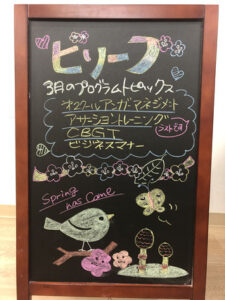 ヒリーブ
3月のプログラムトピックス
オフクールアンガーマネジメント
アサーショントレーニング
CBGT
ビジネスマナー
Spring
has come